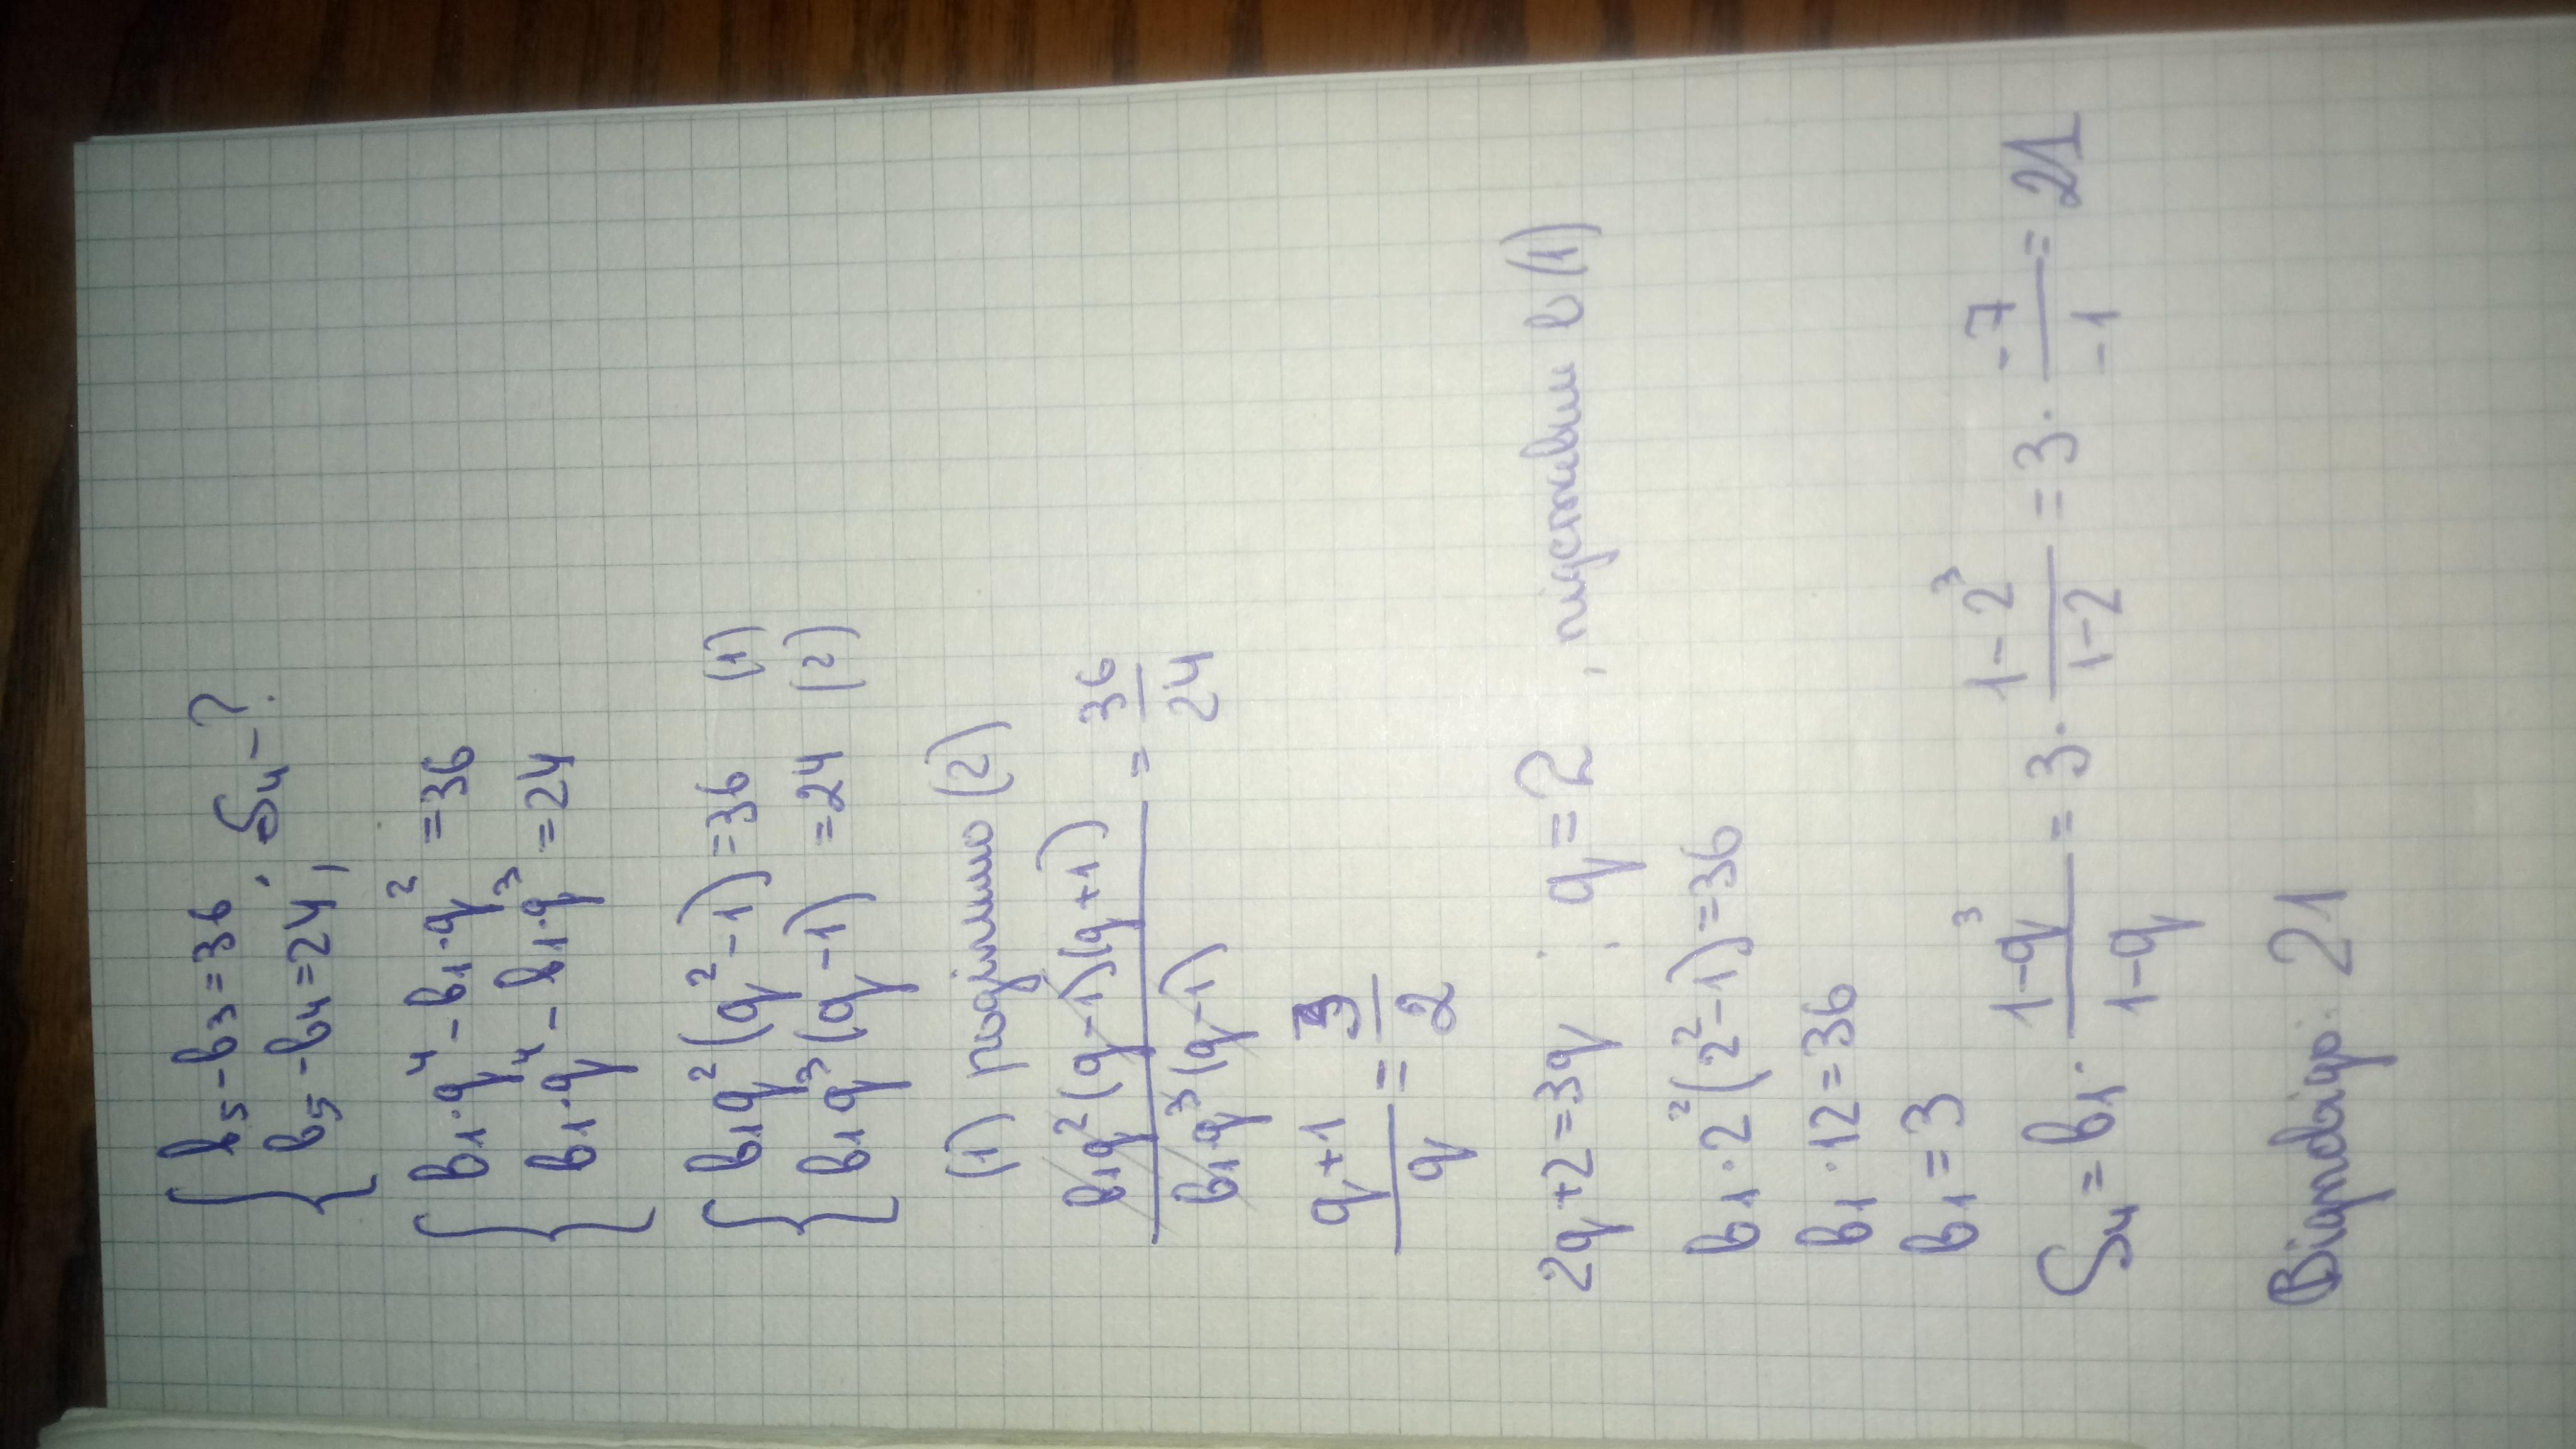 { b₅-b₃=36
{ b₅-b₄=24, S₄-?
{ b₁·q⁴-b₁·q²=36
{ b₁·q⁴-b₁·q³=24
{ b₁q²(q²-1)=36 (1)
{ b₁q³(q-1)=24 (2)
(1) поділимо (2)
b₁q²(q-1)(q+1)/b₁·q³(q-1) = 36/24
q+1/q = 3/2
2q+2=3q ; q=2 , підставим в (1)
b₁·2²(2²-1)=36
b₁·12=36
b₁=3
S₄=b₁·1-q³/1-q = 3·1-2³/1-2 = 3·-7/-1 = 21
Відповідь: 21